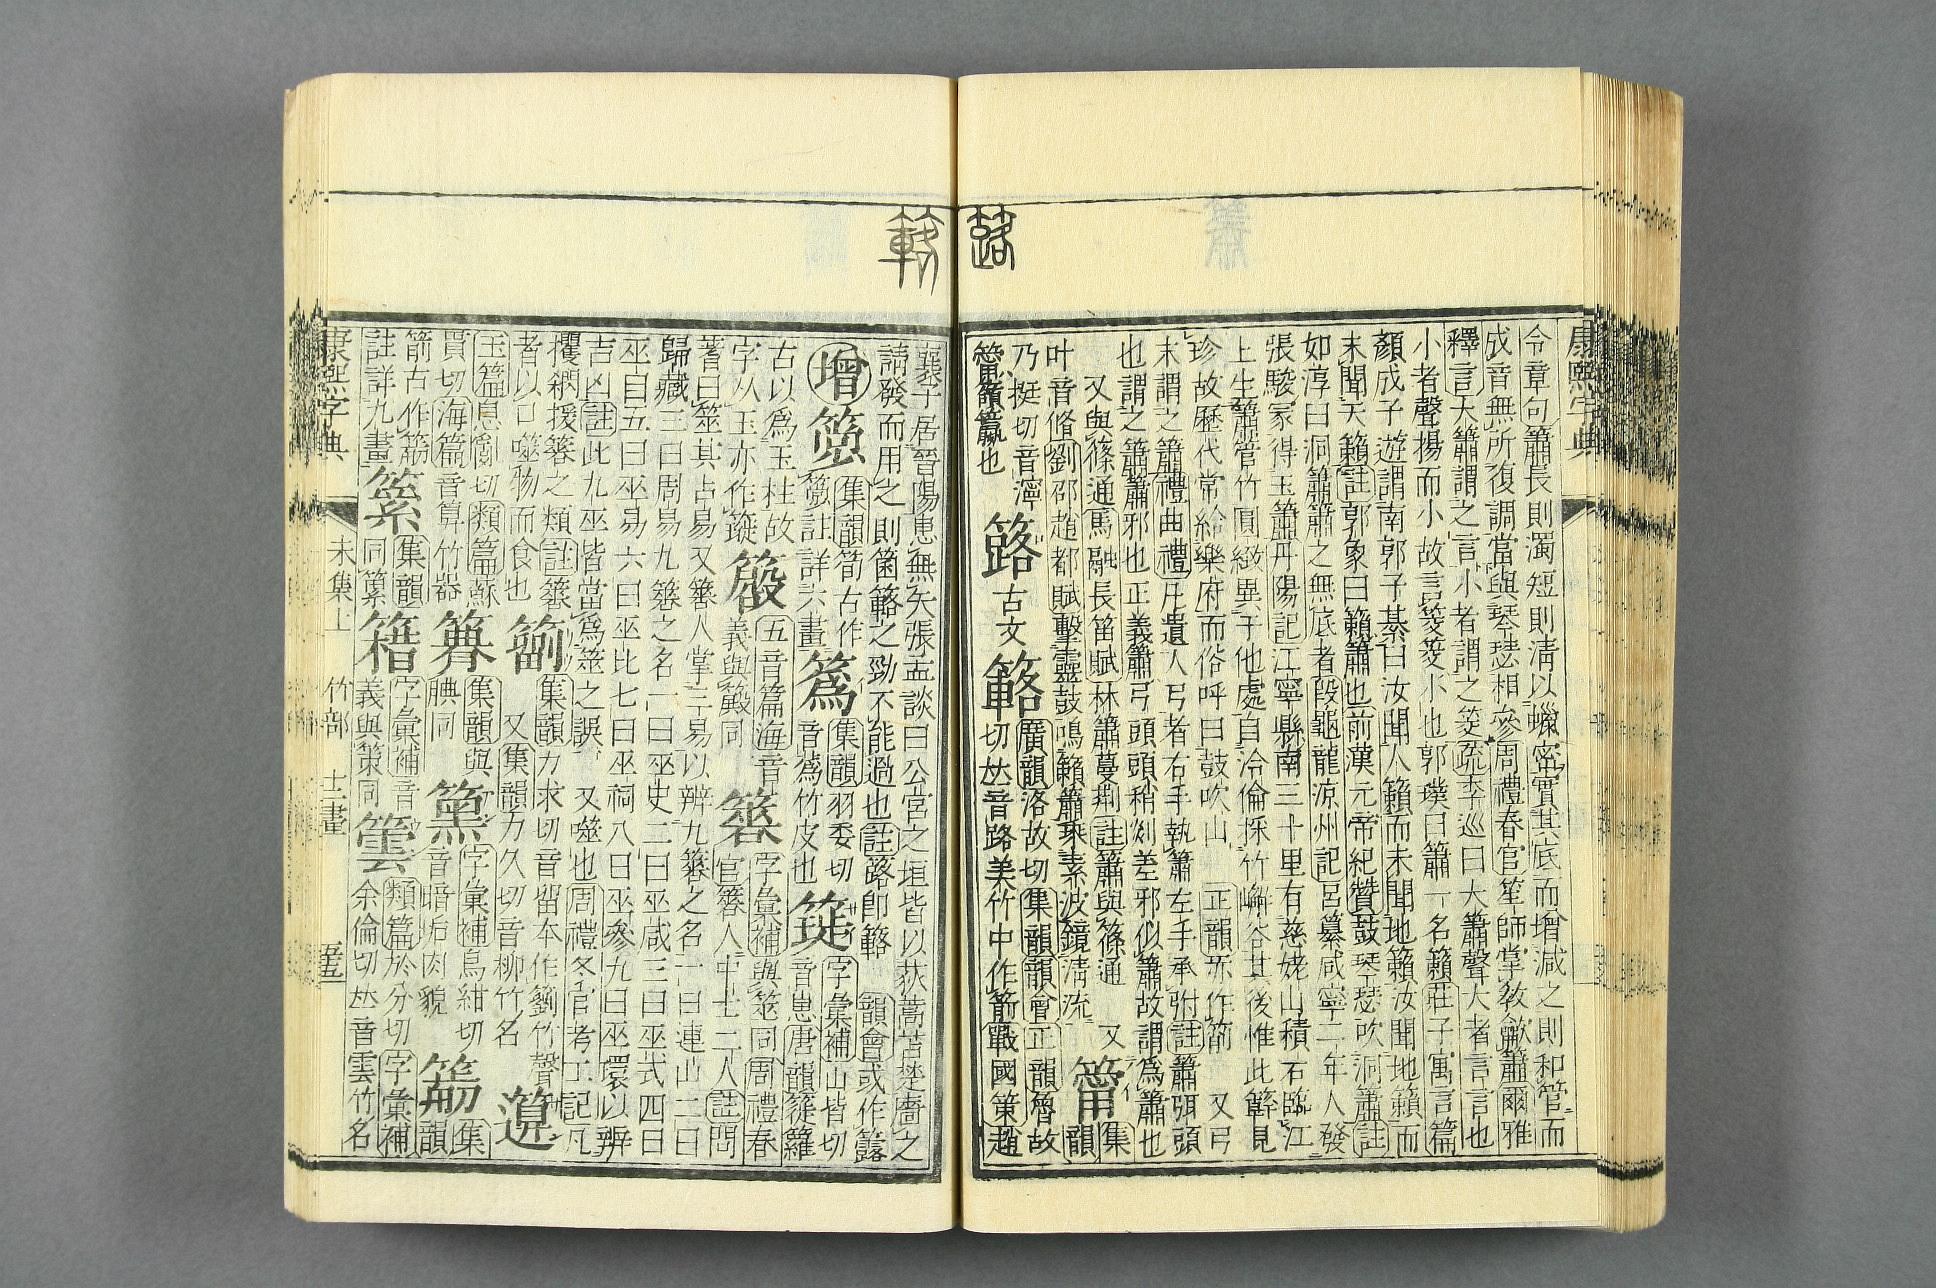 康熙字典
令章句簫長則濁短則淸以蠟蜜實其底而增減之則和管而
成音無所復調當與琴瑟相參周禮春官笙師掌敎龡簫爾雅
釋言大簫謂之言小者謂之筊疏李巡曰大簫聲大者言言也
小者聲揚而小故言筊筊小也郭璞曰簫一名籟莊子寓言篇
顏成子遊謂南郭子綦曰汝聞人籟而未聞地籟汝聞地籟而
未聞天籟註郭象曰籟簫也前漢元帝紀贊鼓琴瑟吹洞簫註
如淳曰洞簫簫之無底者段龜龍涼州記呂纂咸寧二年人發
張駿冢得玉簫丹陽記江寧縣南三十里有慈姥山積石臨江
上生簫管竹圓緻異于他處自泠倫採竹嶰谷其後惟此簳見
珍故歷代常給樂府而俗呼曰鼓吹山 正韻亦作箾 又弓
末謂之簫禮曲禮凡遺人弓者右手執簫左手承弣註簫弭頭
也謂之簫簫邪也正義簫弓頭頭稍剡差邪似簫故謂爲簫也
又與篠通馬融長笛賦林簫蔓荆註簫與篠通 又
叶音脩劉邵趙都賦擊靈鼓鳴籟簫乘素波鏡淸流
䈿 集韻
乃挺切音濘
籋籯也
簬 古文簵 廣韻洛故切集韻韻會正韻魯故
切𠀤音路美竹中作箭戰國策趙
襄子居晉陽患無矢張孟談曰公宮之垣皆以荻蒿苫楚廧之
請發而用之則箘簵之勁不能過也註簬卽簵 韻會或作簶
增 集韻筍古作
註詳六畫
集韻羽委切
音蔿竹皮也
字彙補山皆切
音崽唐韻簁籮
古以爲玉柱故
字从玉亦作
五音篇海音
義與簸同
字彙補與筮同周禮春
官簭人中士二人註問
蓍曰筮其占易又簭人掌三易以辨九簭之名一曰連山二曰
歸藏三曰周易九簭之名一曰巫更二曰巫咸三曰巫式四曰
巫目五曰巫易六曰巫比七曰巫祠八曰巫參九曰巫環以辨
吉凶註此九巫皆當爲筮之誤 又噬也周禮冬官考工記凡
攫閷援簭之類註簭
者以口噬物而食也
集韻力求切音留本作籀竹聲
又集韻力久切音柳竹名
玉篇息衝切類篇蘇
貫切海篇音算竹器
集韻與
腆同
字彙補烏紺切
音暗垢肉貌
集韻
箭古作
註詳九畫
集韻
同纂
字彙補音
義與策同
類篇於分切字彙補
余倫切𠀤音雲竹名
康熙字典 未集上 竹部 十二畫